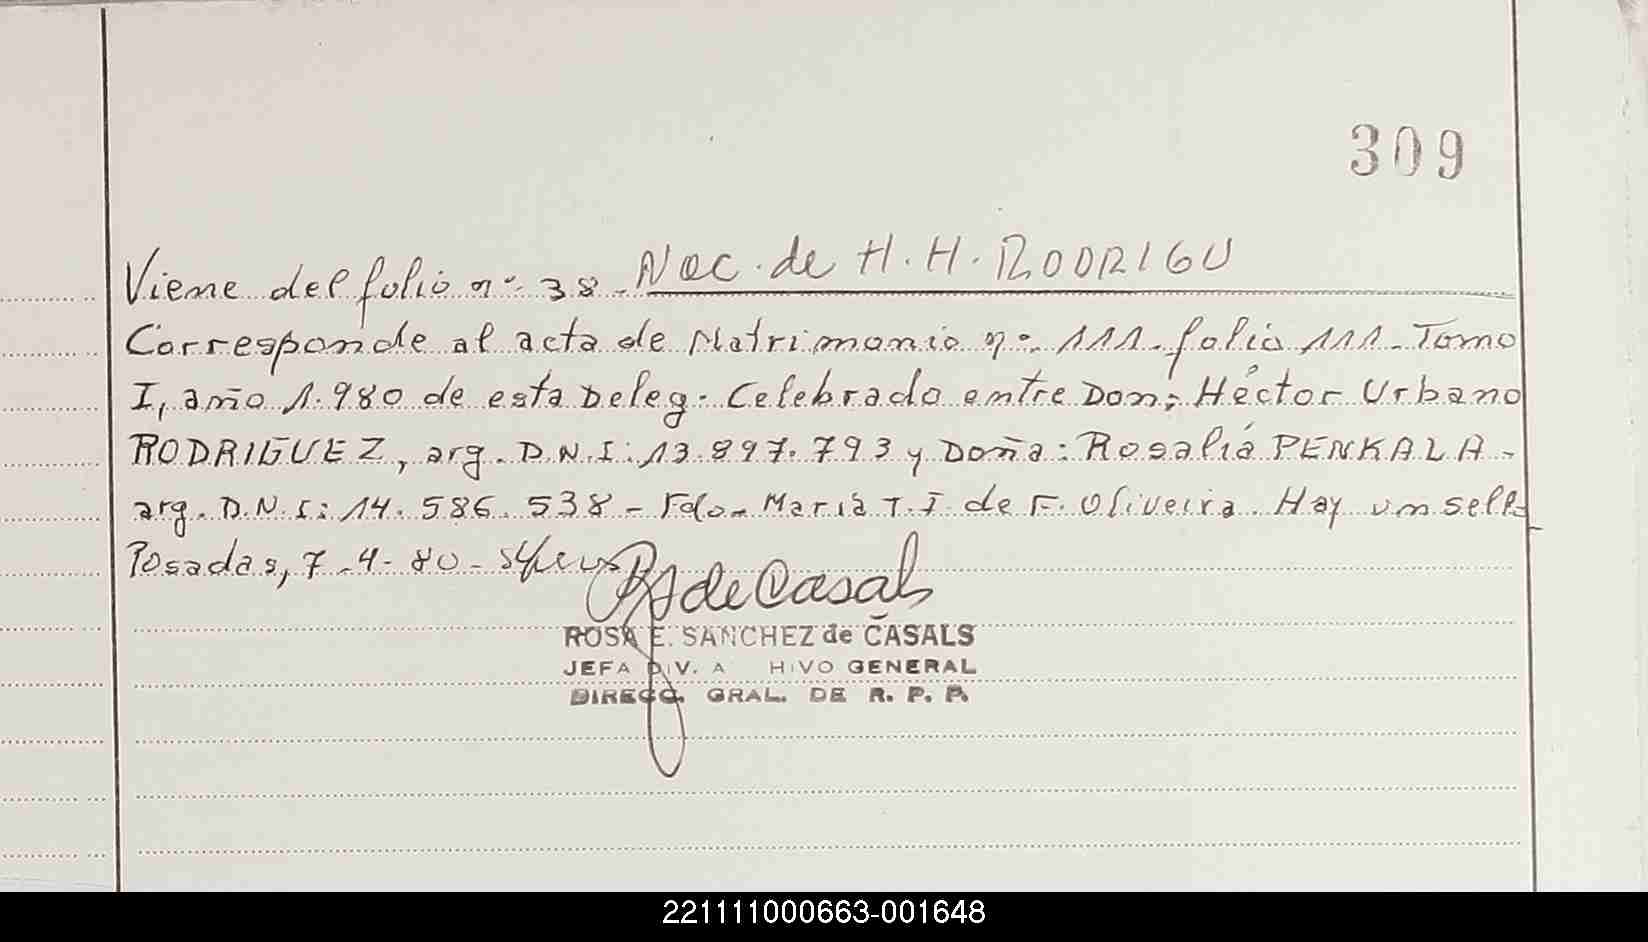 309
Viene del folio nº 38 - Nac. de H. H. RODRIGU
Corresponde al acta de Matrimonio nº 111 - folio 111 - Tomo
I, año 1.980 de esta Deleg. Celebrado entre Don; Héctor Urbano
RODRIGUEZ, arg. D.N.I: 13.897.793 y Doña: Rosalia PENKALA -
arg. D.N.I: 14.586.538 - Fdo - Maria T. I. de F. Oliveira. Hay un sello
Posadas, 7-4-80 -
RS de Casals
ROSA E. SANCHEZ de CASALS
JEFA DIV. A HIVO GENERAL
DIRECC. GRAL. DE R. P. P.
221111000663-001648